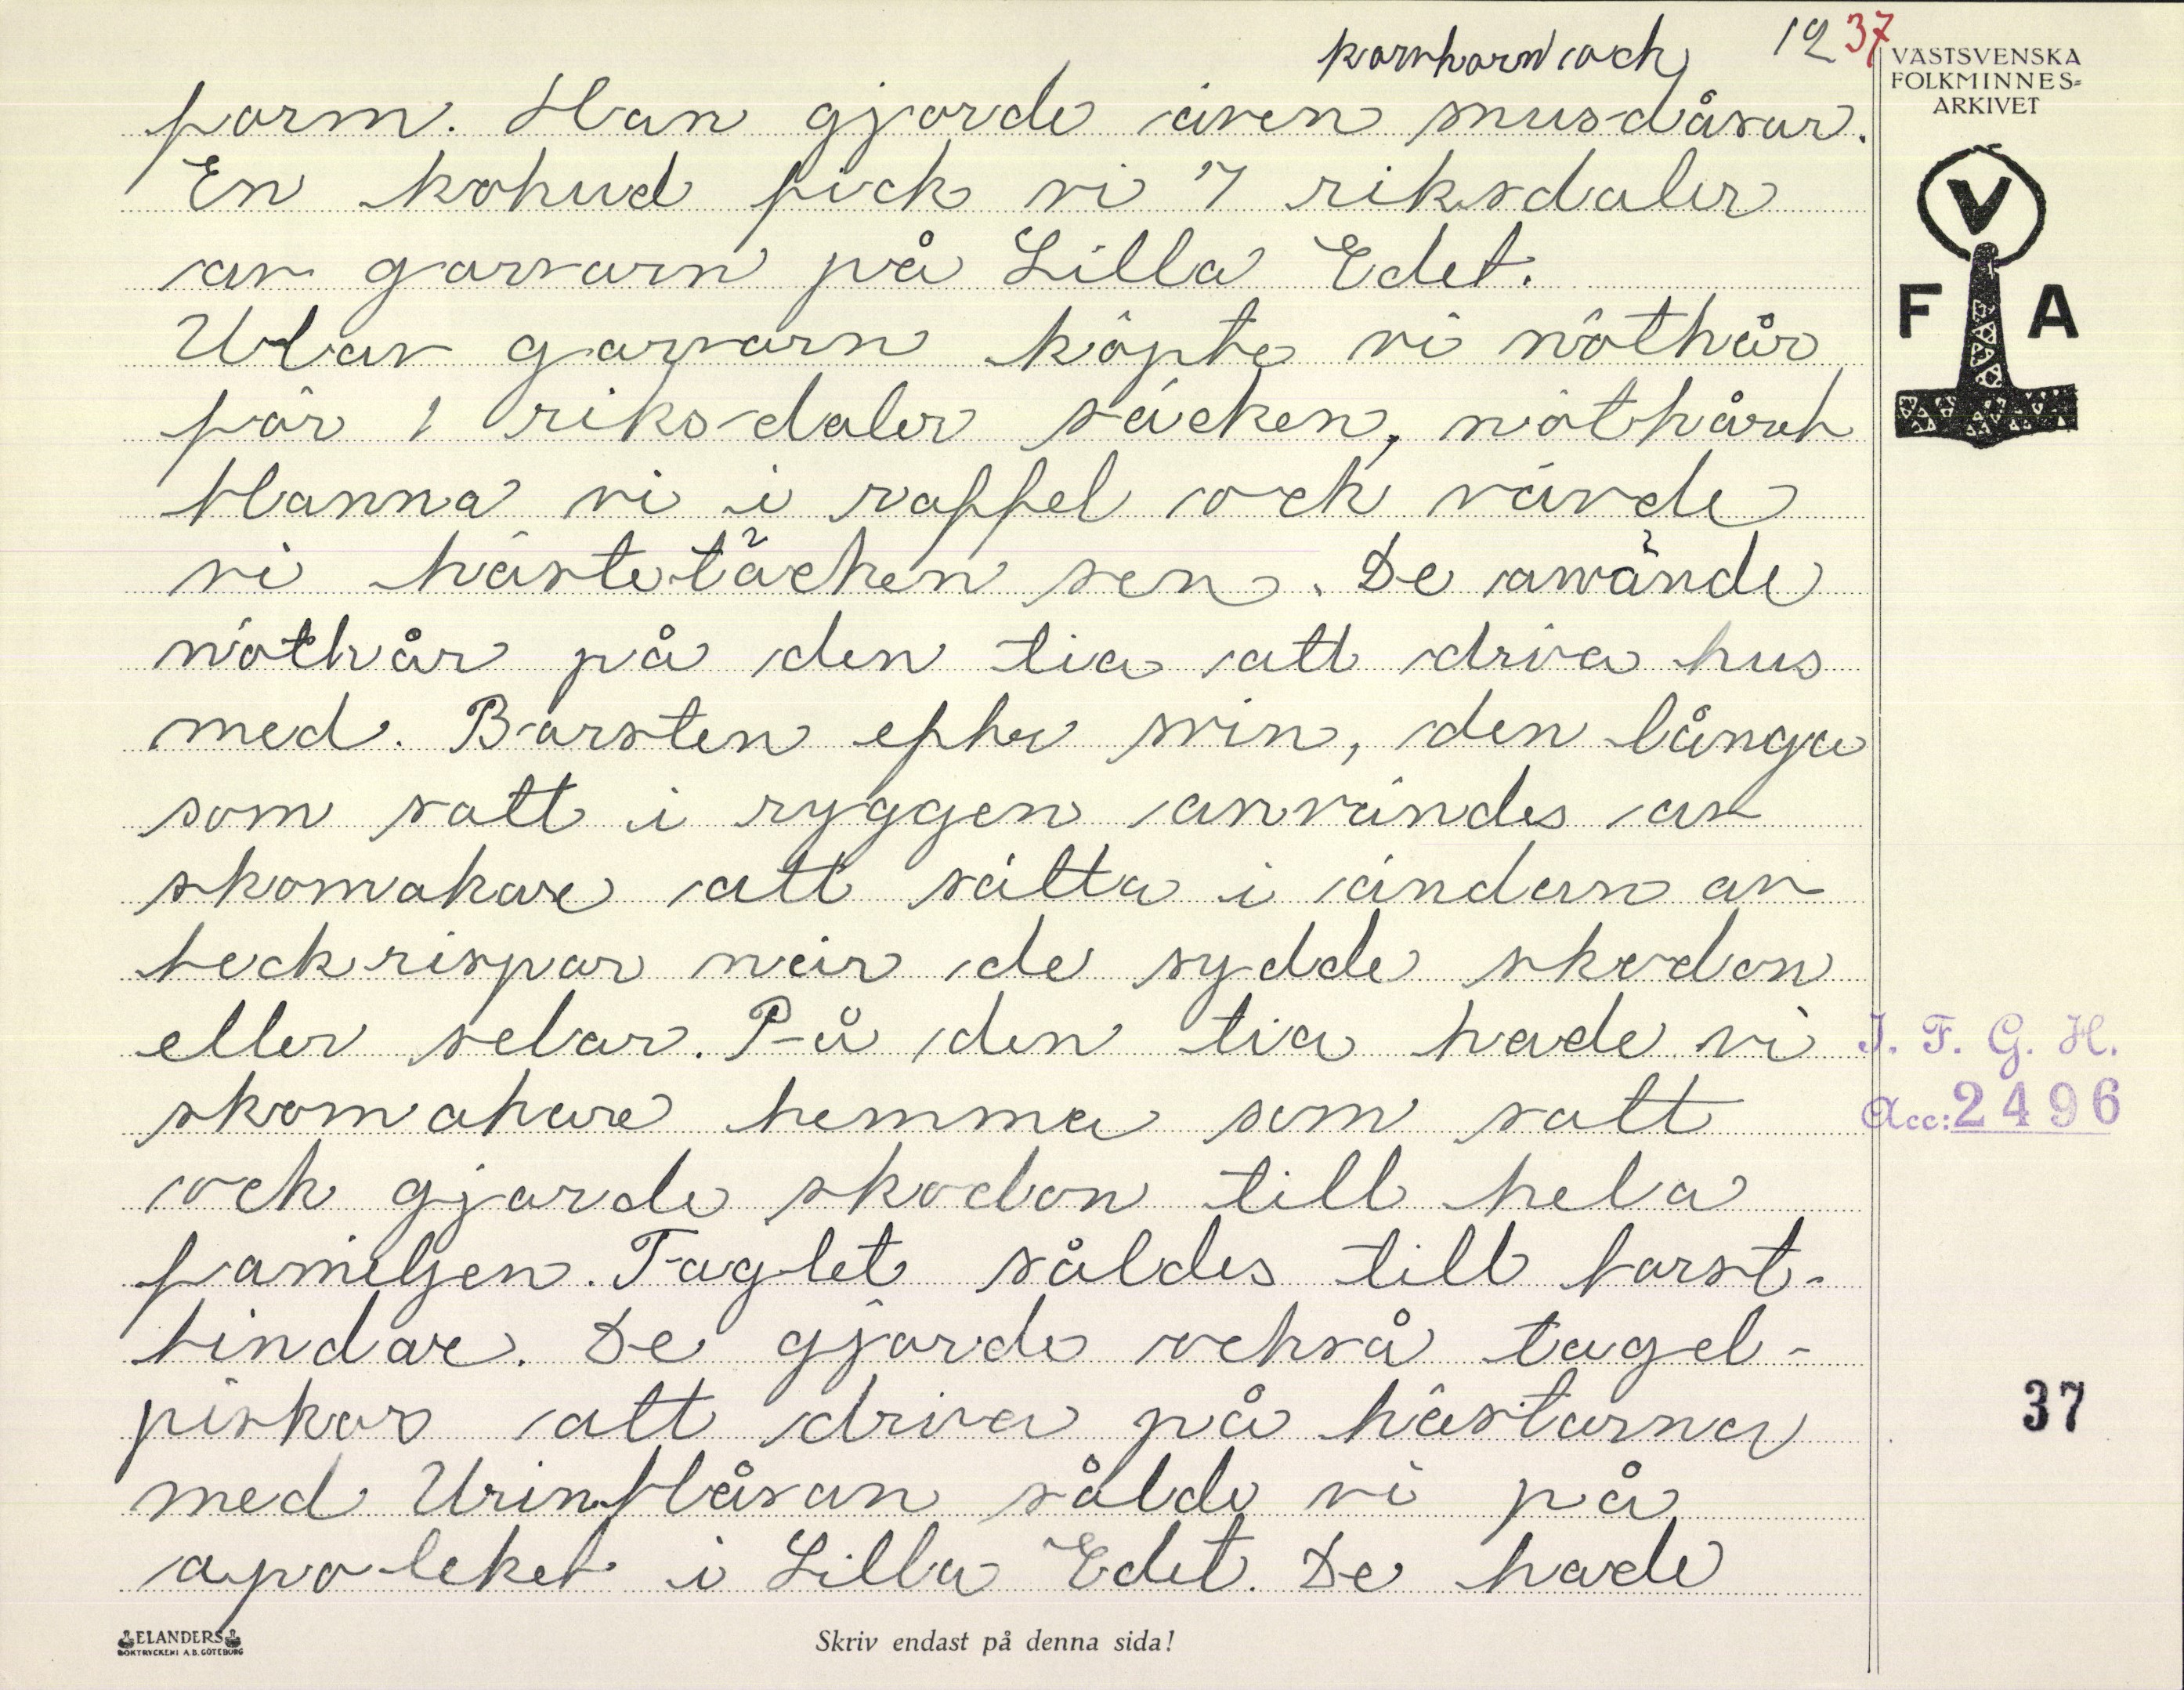 kornhorn och
12 37
form. Han gjorde även snusdåsar.
En kohud fick vi 7 riksdaler
av garvarn på Lilla Edet.
Utav garvarn köpte vi nöthår
för 1 riksdaler säcken, nöthåret
blanna vi i raffel och vävde
vi hästetäcken sen. De använde
nöthår på den tia att driva hus
med. Borsten efter svin, den långa
som satt i ryggen användes av
skomakare att sätta i ändarn av
beckrispar när de sydde skodon
eller selar. På den tia hade vi
skomakare hemma som satt
och gjorde skodon till hela
familjen. Taglet såldes till borst-
bindare. De gjorde också tagel-
piskor att driva på hästarna
med Urinblåsan sålde vi på
apoteket i Lilla Edet. De hade
VÄSTSVENSKA
FOLKMINNES=
ARKIVET
V
F A
I. F. G. H.
Acc: 2496
37
ELANDERS
BOKTRYCKERI A.B. GÖTEBORG
Skriv endast på denna sida!